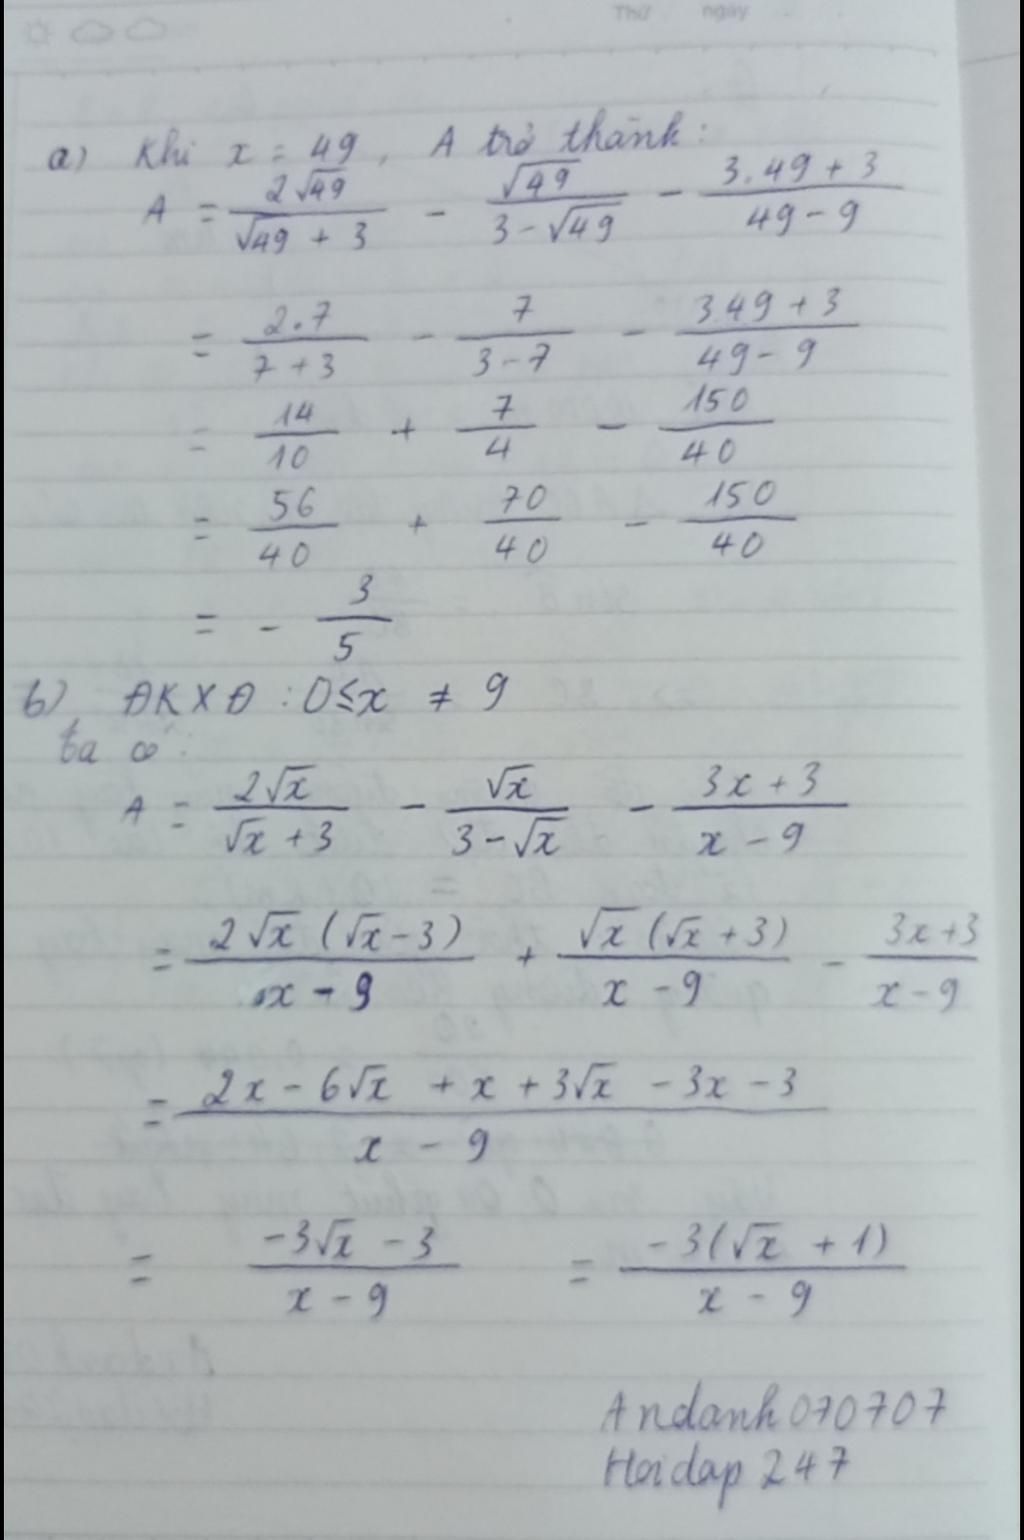 Thứ ngày
a) Khi x = 49, A trở thành:
A = \frac{2\sqrt{49}}{\sqrt{49} + 3} - \frac{\sqrt{49}}{3 - \sqrt{49}} - \frac{3.49 + 3}{49 - 9}
= \frac{2.7}{7 + 3} - \frac{7}{3 - 7} - \frac{3.49 + 3}{49 - 9}
= \frac{14}{10} + \frac{7}{4} - \frac{150}{40}
= \frac{56}{40} + \frac{70}{40} - \frac{150}{40}
= - \frac{3}{5}
b) ĐKXĐ : 0 ≤ x ≠ 9
ta có:
A = \frac{2\sqrt{x}}{\sqrt{x} + 3} - \frac{\sqrt{x}}{3 - \sqrt{x}} - \frac{3x + 3}{x - 9}
= \frac{2\sqrt{x}(\sqrt{x} - 3)}{x - 9} + \frac{\sqrt{x}(\sqrt{x} + 3)}{x - 9} - \frac{3x + 3}{x - 9}
= \frac{2x - 6\sqrt{x} + x + 3\sqrt{x} - 3x - 3}{x - 9}
= \frac{-3\sqrt{x} - 3}{x - 9} = \frac{-3(\sqrt{x} + 1)}{x - 9}
Andanh070707
Hoidap247